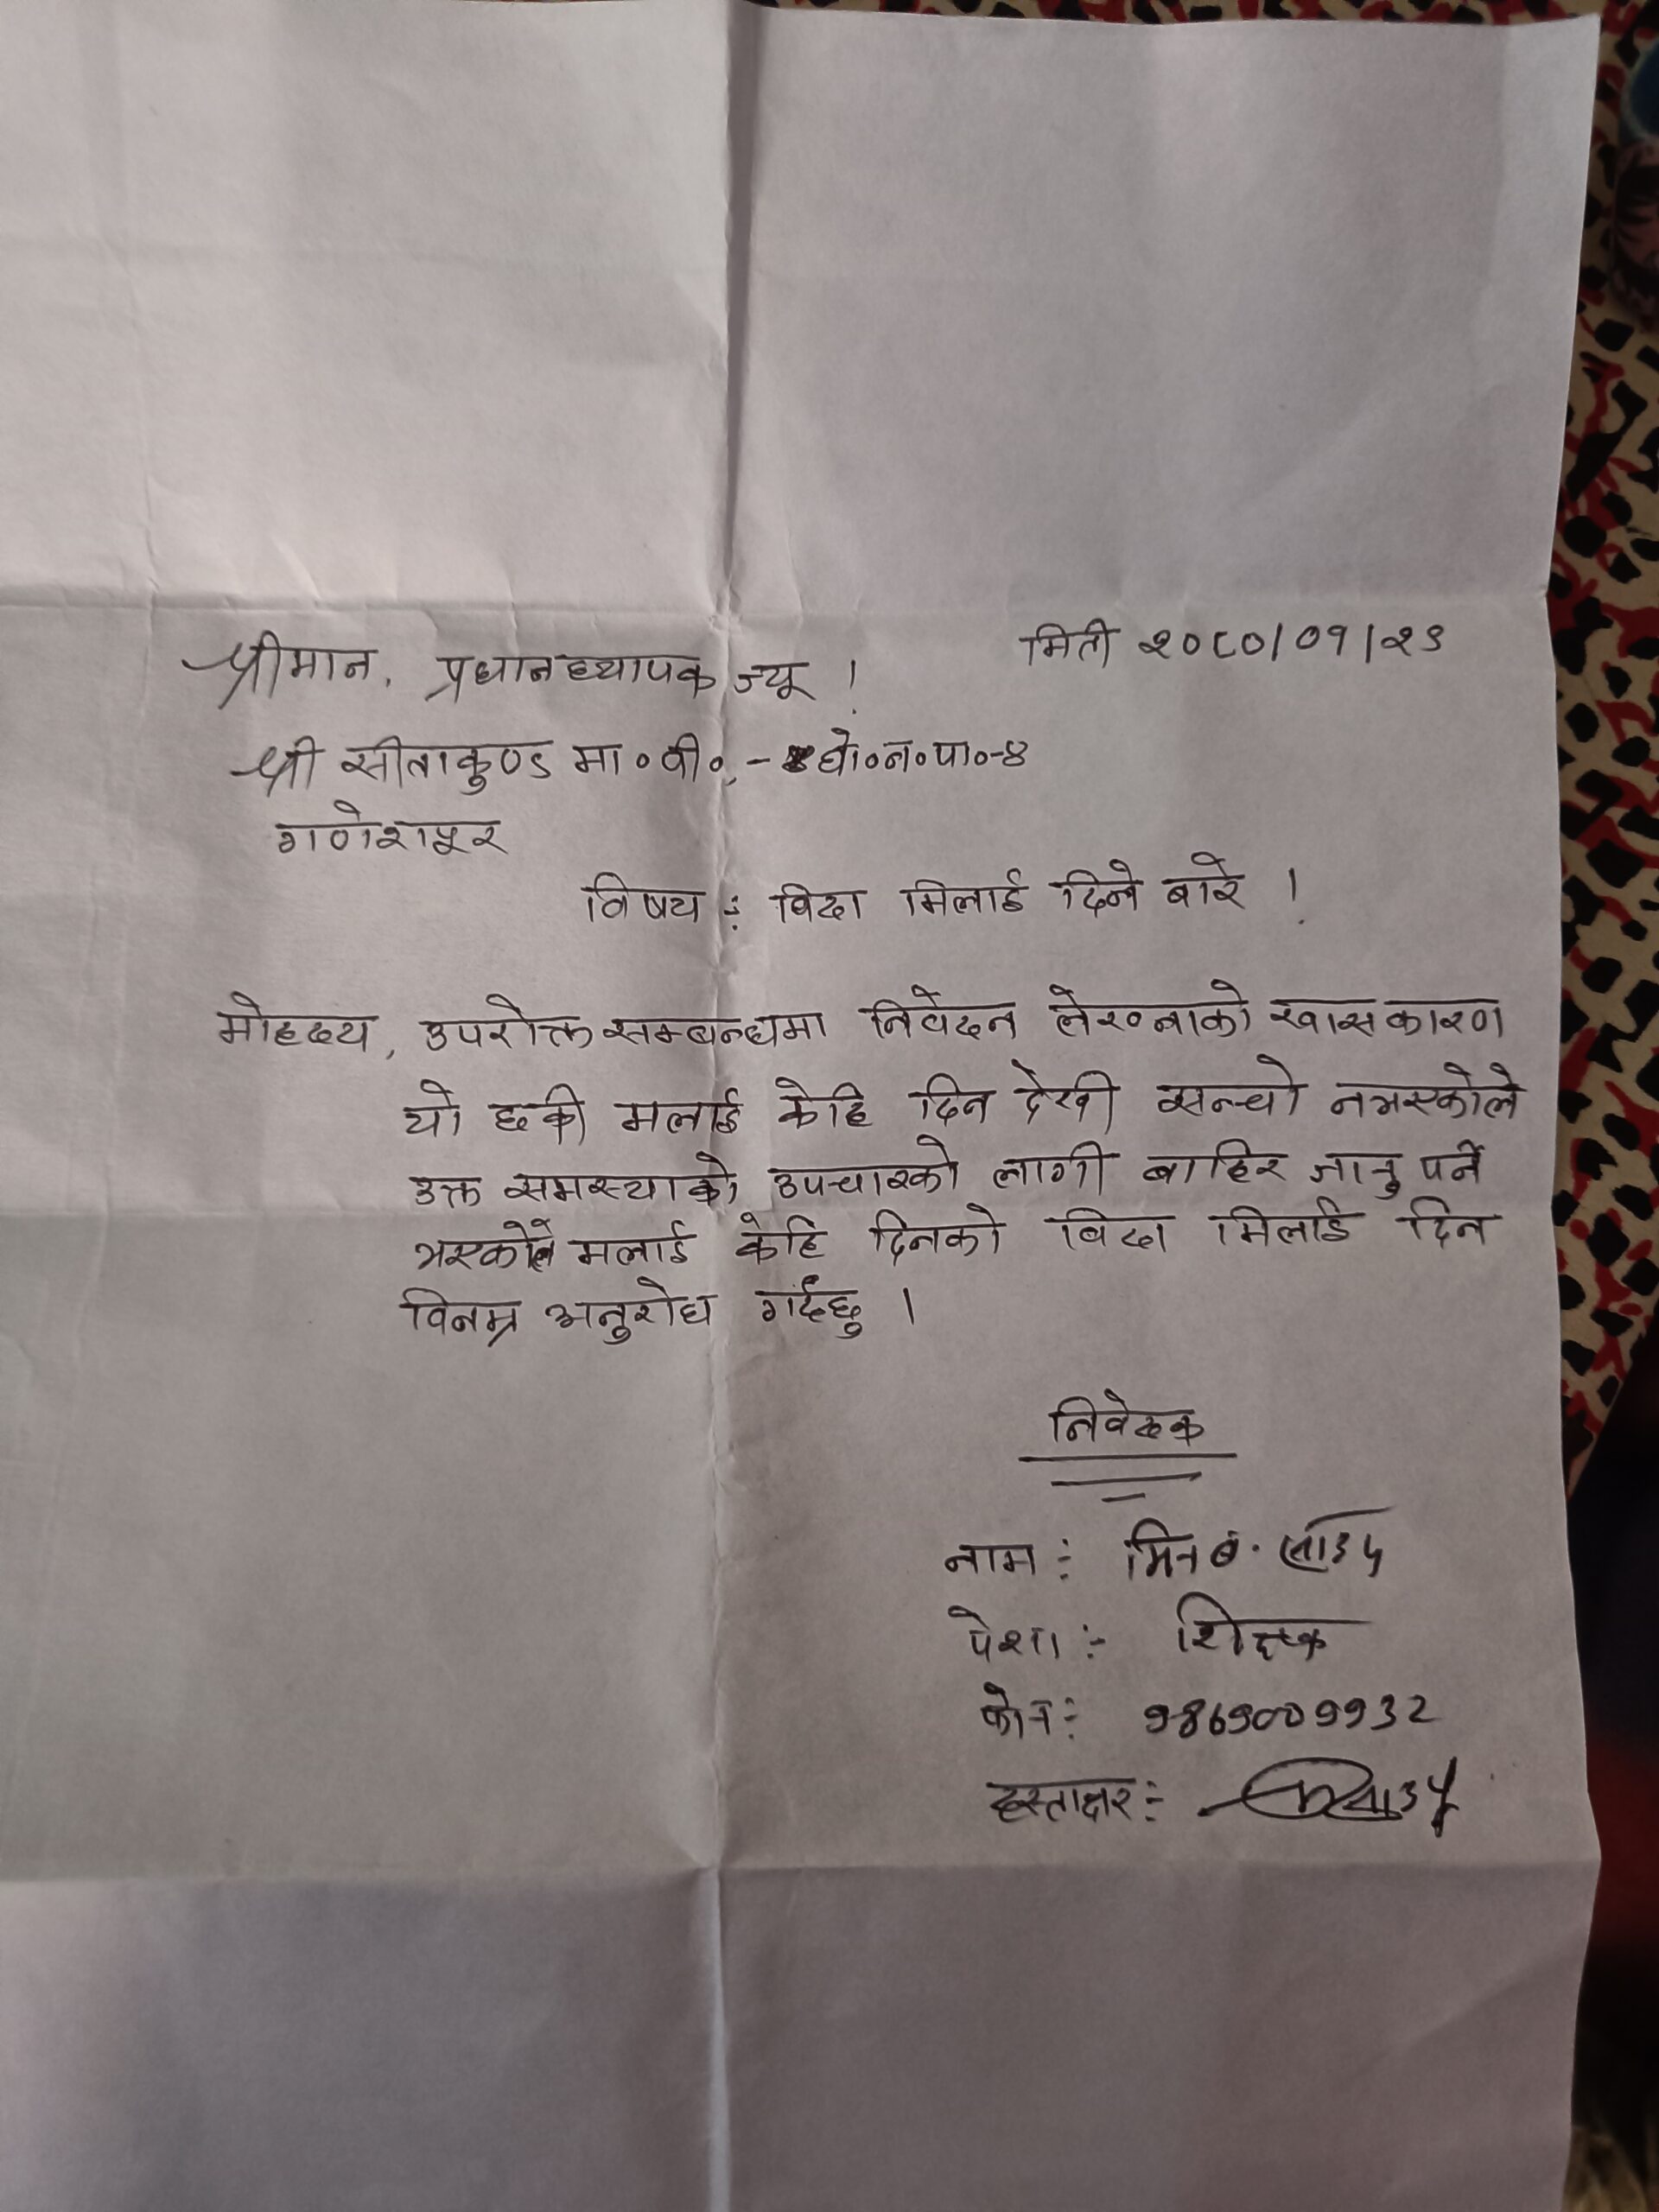 मिती २०८०/०१/२९
श्रीमान, प्रधानध्यापक ज्यू !
श्री सीताकुण्ड मा०वी०, - घो०न०पा०-४
गणेशपूर
विषय : विदा मिलाई दिने बारे !
मोहदय, उपरोक्त सम्बन्धमा निर्वेदन लेख्नाको खास कारण
यो छकी मलाई केहि दिन देखी सन्चो नभएकोले
उक्त समस्याको उपचारको लागी बाहिर जानु पर्ने
भएकोले मलाई केहि दिनको विदा मिलाई दिन
विनम्र अनुरोध गर्दछु ।
निवेदक
नाम :- मिन ब.
पेशा :- शिक्षक
फोन :- 9869009932
हस्ताक्षर :-